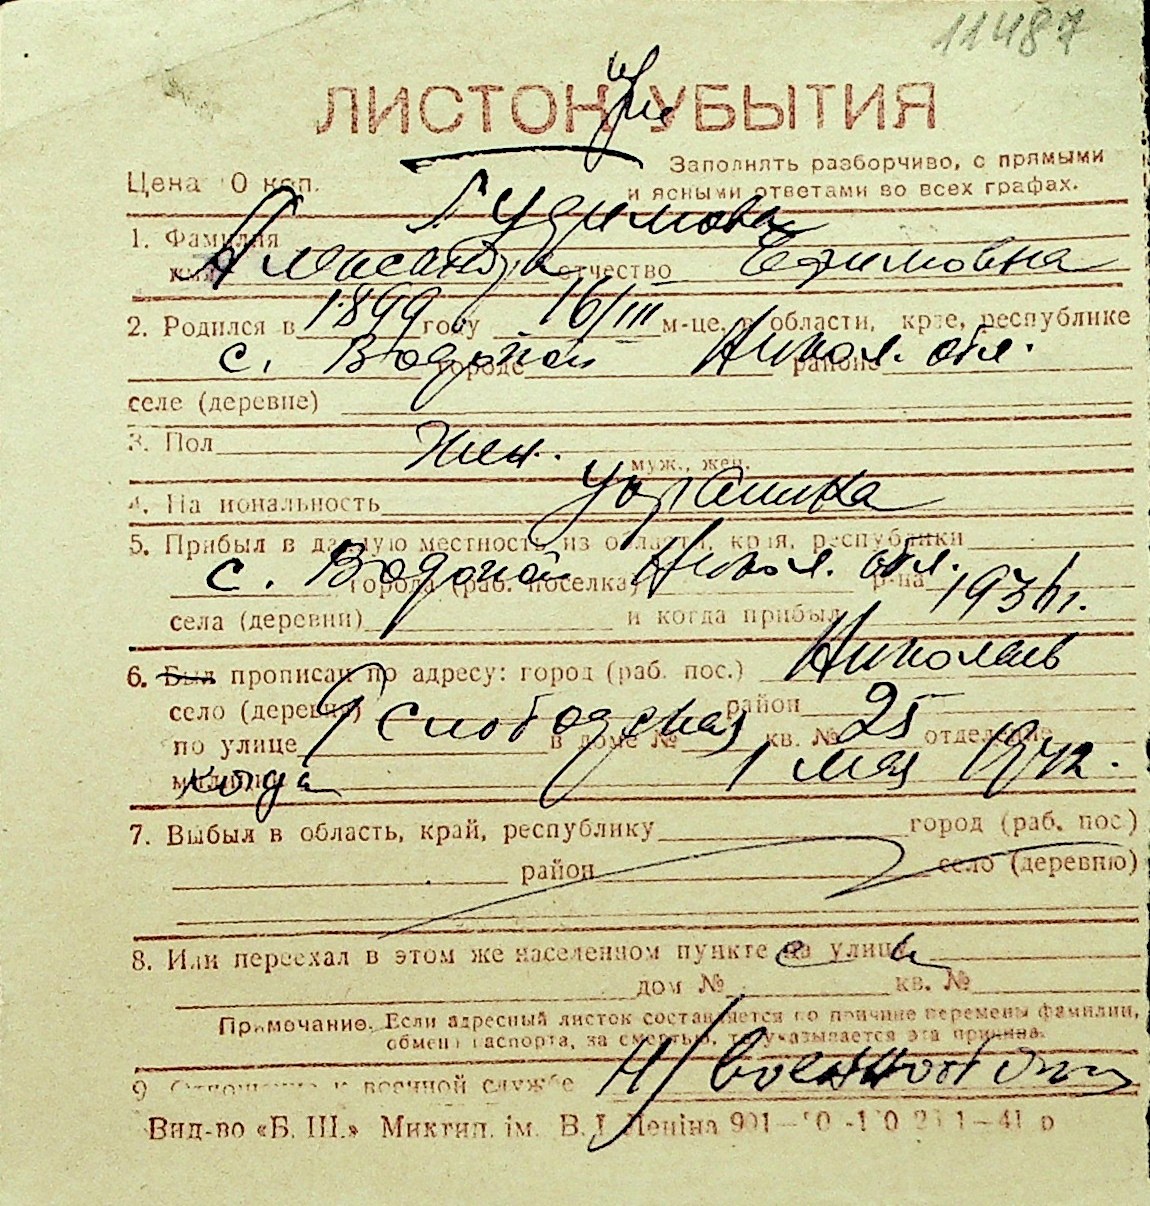 11487
ЛИСТОК УБЫТИЯ
Заполнять разборчиво, с прямыми
Цена 10 коп.
и ясными ответами во всех графах.
1. Фамилия Гудимова
имя Александра отчество Ефимовна
2. Родился в 1899 году 16/III м-це, в области, крае, республике
с. Водопой Никол. обл.
городе районе
селе (деревне)
3. Пол Жен. муж., жен.
4. Национальность украинка
5. Прибыл в данную местность из области, края, республики
с. Водопой Никол. обл.
города (раб. поселка) р-на
села (деревни) и когда прибыл 1936 г.
6. Был прописан по адресу: город (раб. пос.) Николаев
село (деревня) район
по улице Слободская в доме № кв. № 25 отделение
милиции когда 1 мая 1942.
7. Выбыл в область, край, республику город (раб. пос.)
район село (деревню)
8. Или переехал в этом же населенном пункте на улицу
дом № кв. №
Примечание. Если адресный листок составляется по причине перемены фамилии,
обмена паспорта, за смертью, то указывается эта причина.
9 Отношение к военной службе Н/военнообяз
Вид-во «Б. Ш.» Миктип. ім. В. І. Леніна